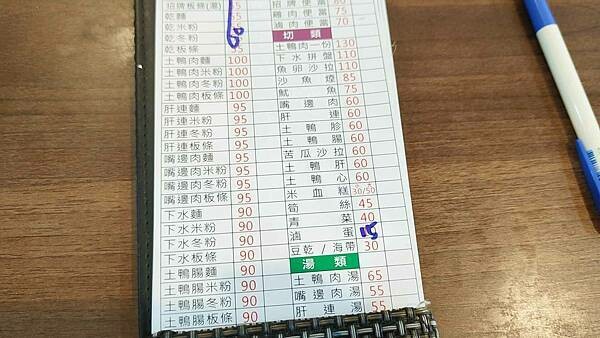 招牌板條(湯)
乾麵
乾米粉
乾冬粉
乾板條
土鴨肉麵 100
土鴨肉米粉 100
土鴨肉冬粉 100
土鴨肉板條 100
肝連麵 95
肝連米粉 95
肝連冬粉 95
肝連板條 95
嘴邊肉麵 95
嘴邊肉米粉 95
嘴邊肉冬粉 95
嘴邊肉板條 95
下水麵 90
下水米粉 90
下水冬粉 90
下水板條 90
土鴨腸麵 90
土鴨腸米粉 90
土鴨腸冬粉 90
土鴨腸板條 90
招牌便當 80
鴨肉便當 75
滷肉便當 70
切類
土鴨肉一份 130
下水拼盤 110
魚卵沙拉 110
沙魚煙 85
魷魚 75
嘴邊肉 60
肝連 60
土鴨胗 60
土鴨腸 60
苦瓜沙拉 60
土鴨肝 60
土鴨心 60
米血糕 30/50
筍絲 45
青菜 40
滷蛋 15
豆乾/海帶 30
湯類
土鴨肉湯 65
嘴邊肉湯 55
肝連湯 55